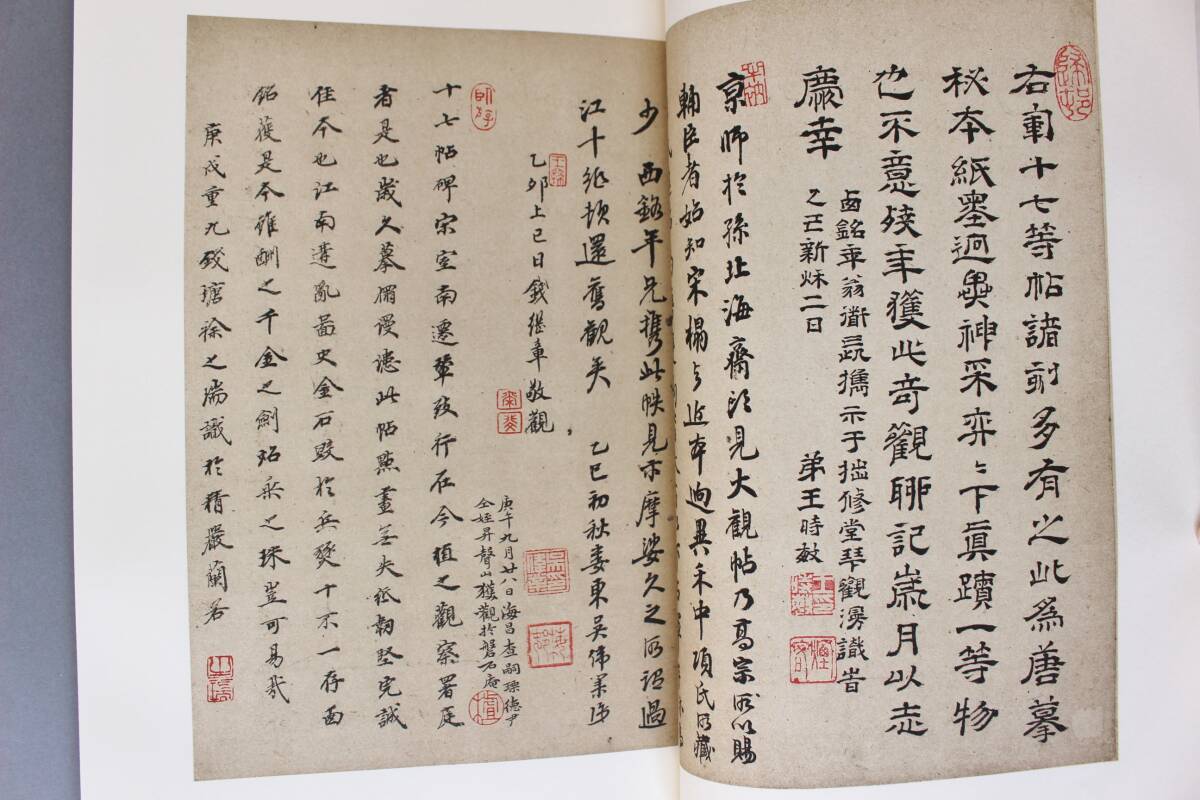 右軍十七等帖諸刻多有之此為唐摹
秘本紙墨迥異神采弈〻下真蹟一等物
也不意殘年獲此奇觀聊記歲月以志
慶幸
西銘年翁道兄攜示于拙修堂琴觀漫識旹
乙巳新秌二日
弟王時敏
京師於孫北海齋頭見大觀帖乃高宗所以賜
輔臣者始知宋榻與近本迥異禾中項氏所藏
少
西銘年兄攜此帙見示摩娑久之所謂過
江十紙頓還舊觀矣
乙巳初秋婁東吳偉業得
乙卯上巳日錢繼章敬觀
庚午九月廿八日海昌查嗣瑮德尹
仝姪昇聲山獲觀於磐石庵
十七帖碑宋室南遷輦致行在今植之觀察署庭
者是也歲久摹搨漫漶此帖點畫無失紙韌堅完誠
佳本也江南遭亂圖史金石毀於兵燹十不一存西
銘獲是本雖酬之千金之劍照乘之珠豈可易哉
庚戌重九後瑭徐之瑞識於精嚴蘭若